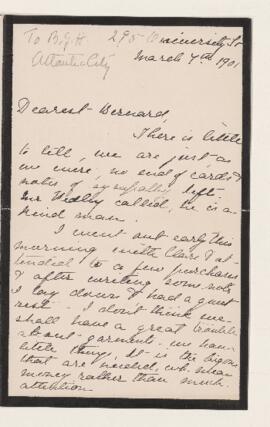 To B.J.H. 295 University St
Atlantic City
March 7th 1901
Dearest Bernard,
There is little
to tell, we are just as
we were, no end of cards &
notes of sympathy left.
Mr called, he is a
kind man.
I went out early this
morning with Claire & at-
tended to a few purchases
& after writing some notes
I lay down & had a quiet
rest - I don't think we
shall have a great trouble
about garments - we have
little things, it is the bigger
that are needed, wh. mean
money rather than much
attention